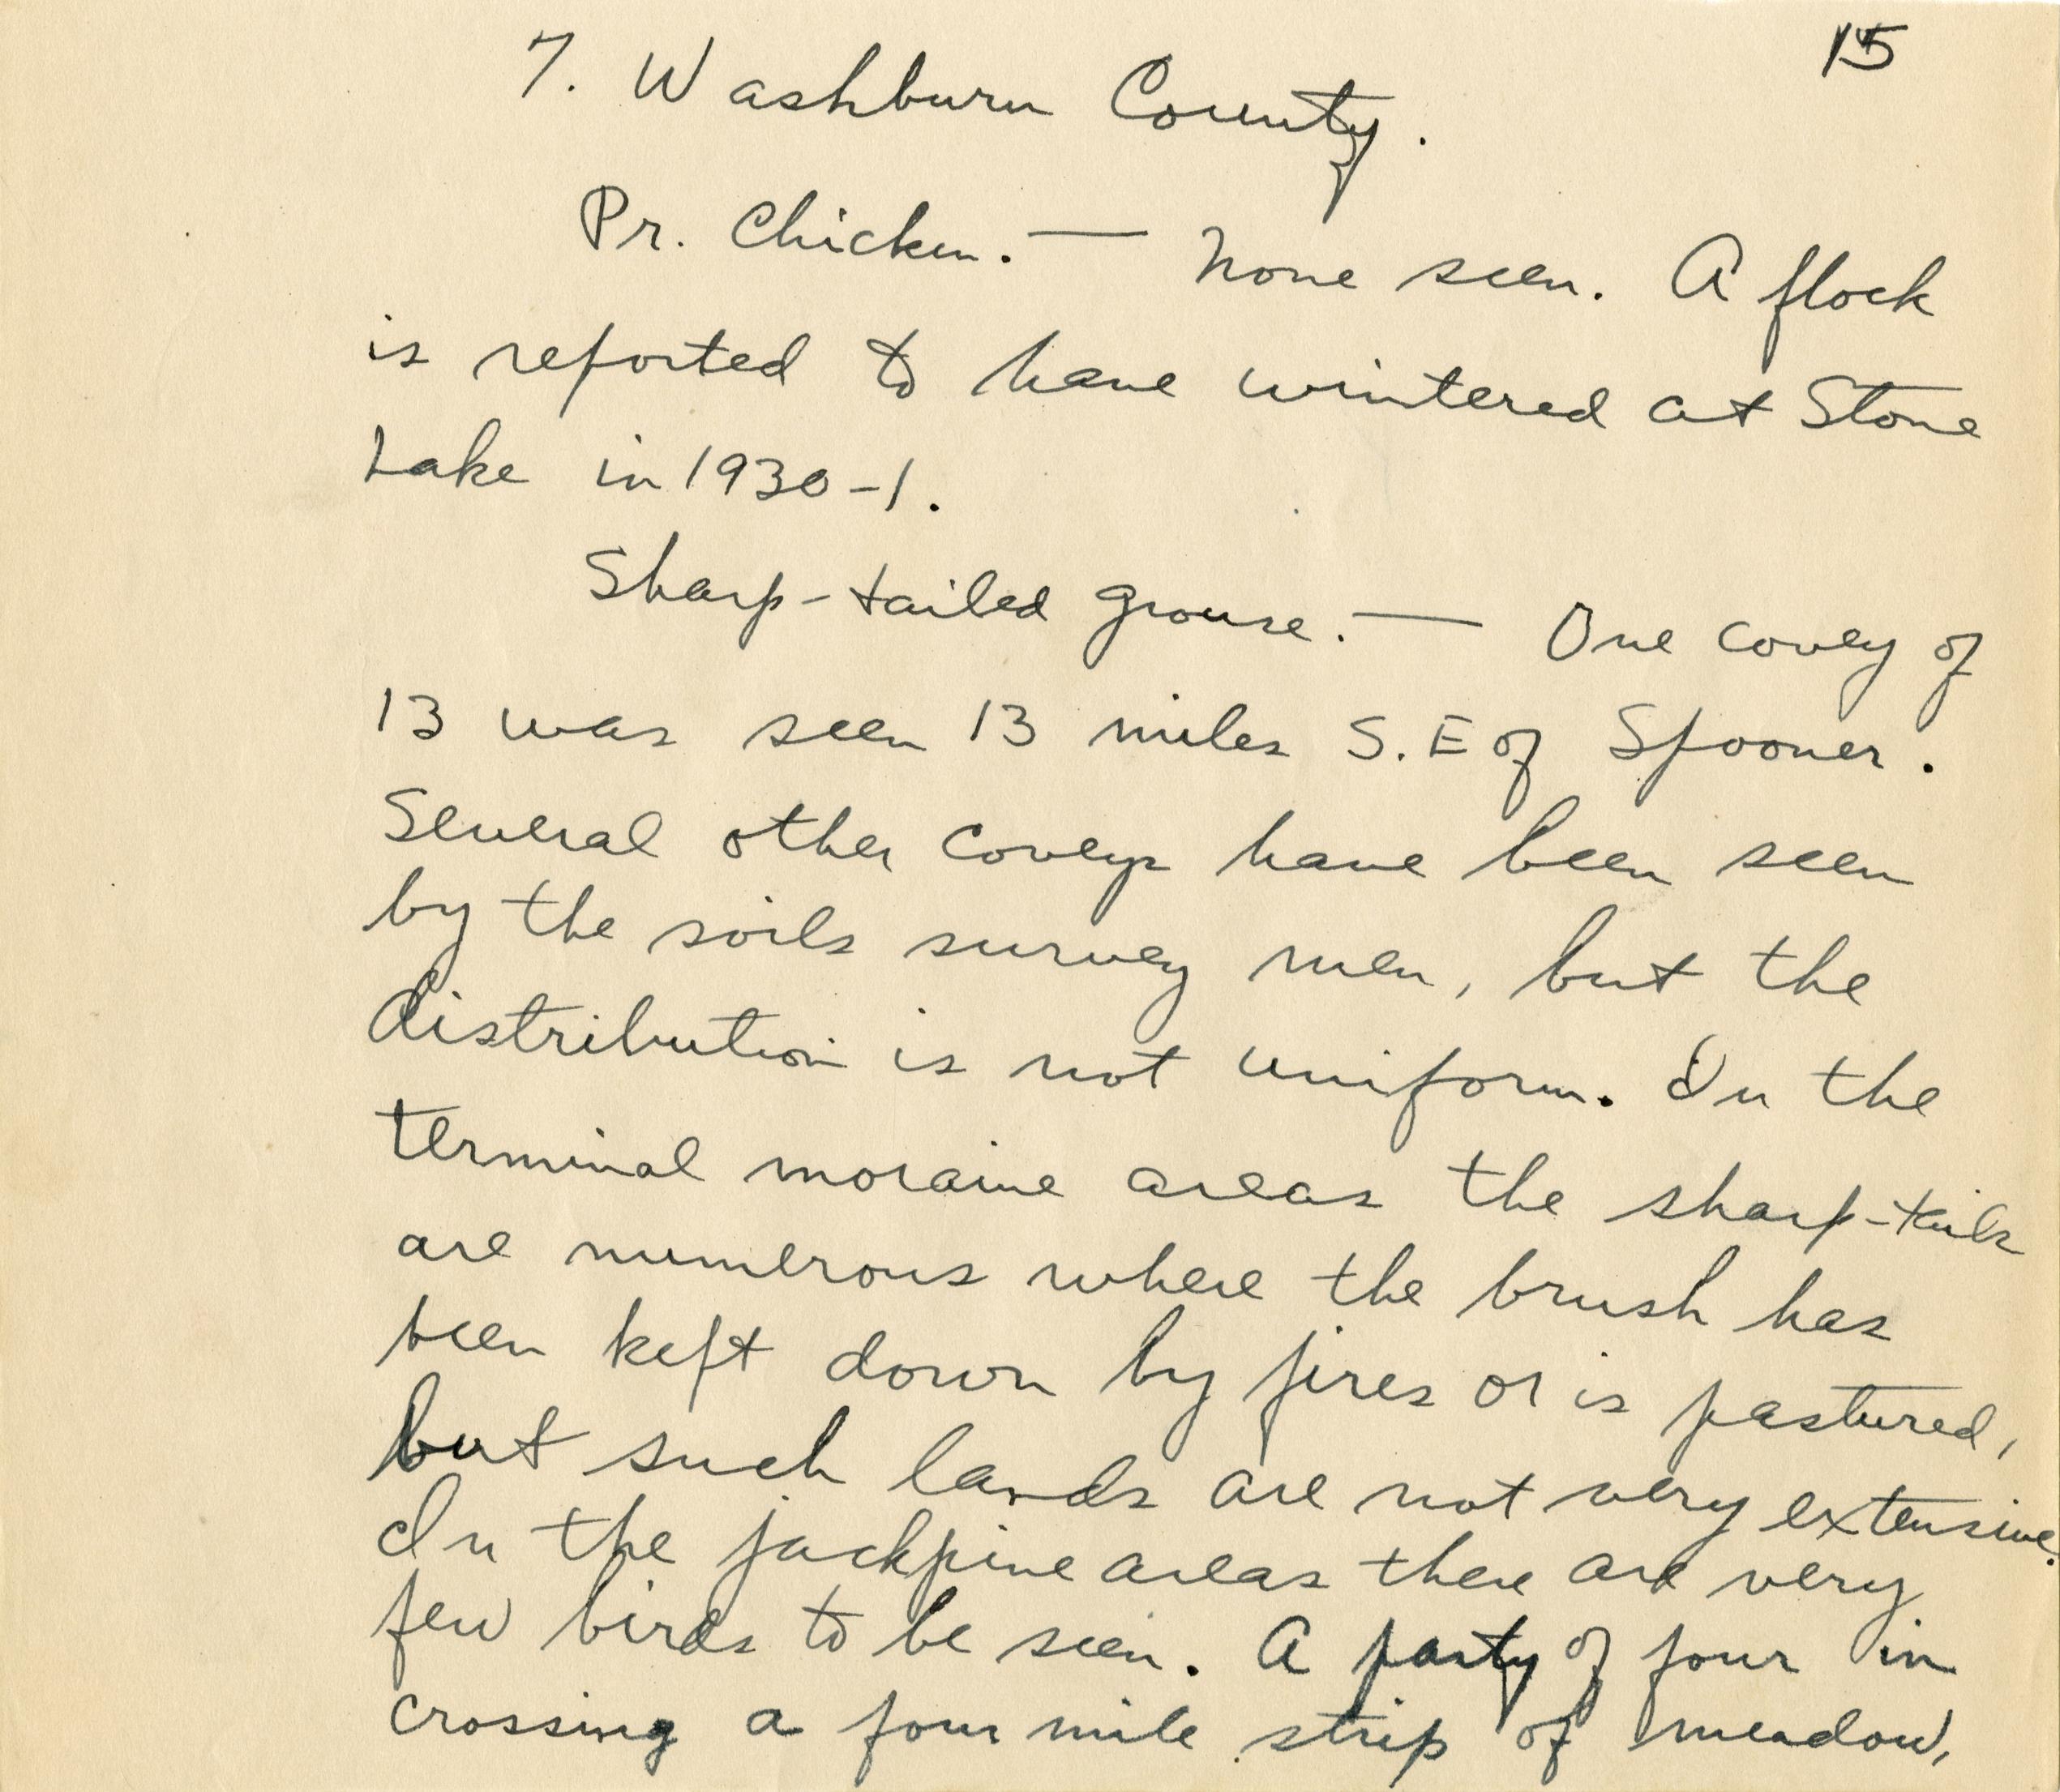 15
7. Washburn County.
Pr. Chicken. — None seen. A flock
is reported to have wintered at Stone
Lake in 1930-1.
Sharp-tailed grouse. — One covey of
13 was seen 13 miles S.E of Spooner.
Several other coveys have been seen
by the soils survey men, but the
distribution is not uniform. In the
terminal moraine areas the sharp-tails
are numerous where the brush has
been kept down by fires or is pastured,
but such lands are not very extensive.
In the jackpine areas there are very
few birds to be seen. A party of four in
crossing a four mile strip of meadow,